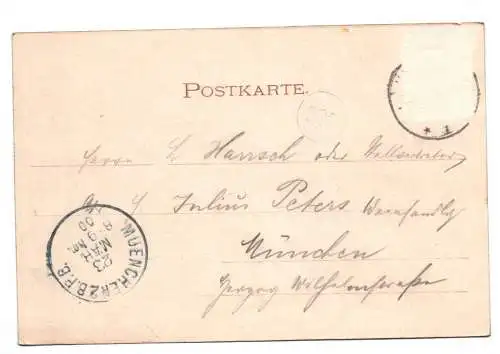 POSTKARTE.
Herrn L Harrsch oder Stellvertreter
Julius Peters Weinhandlg
München
Herzog Wilhelmstraße
MUENCHEN 2 B.P.B.
23
MAR
8-9 VM
00
* 1